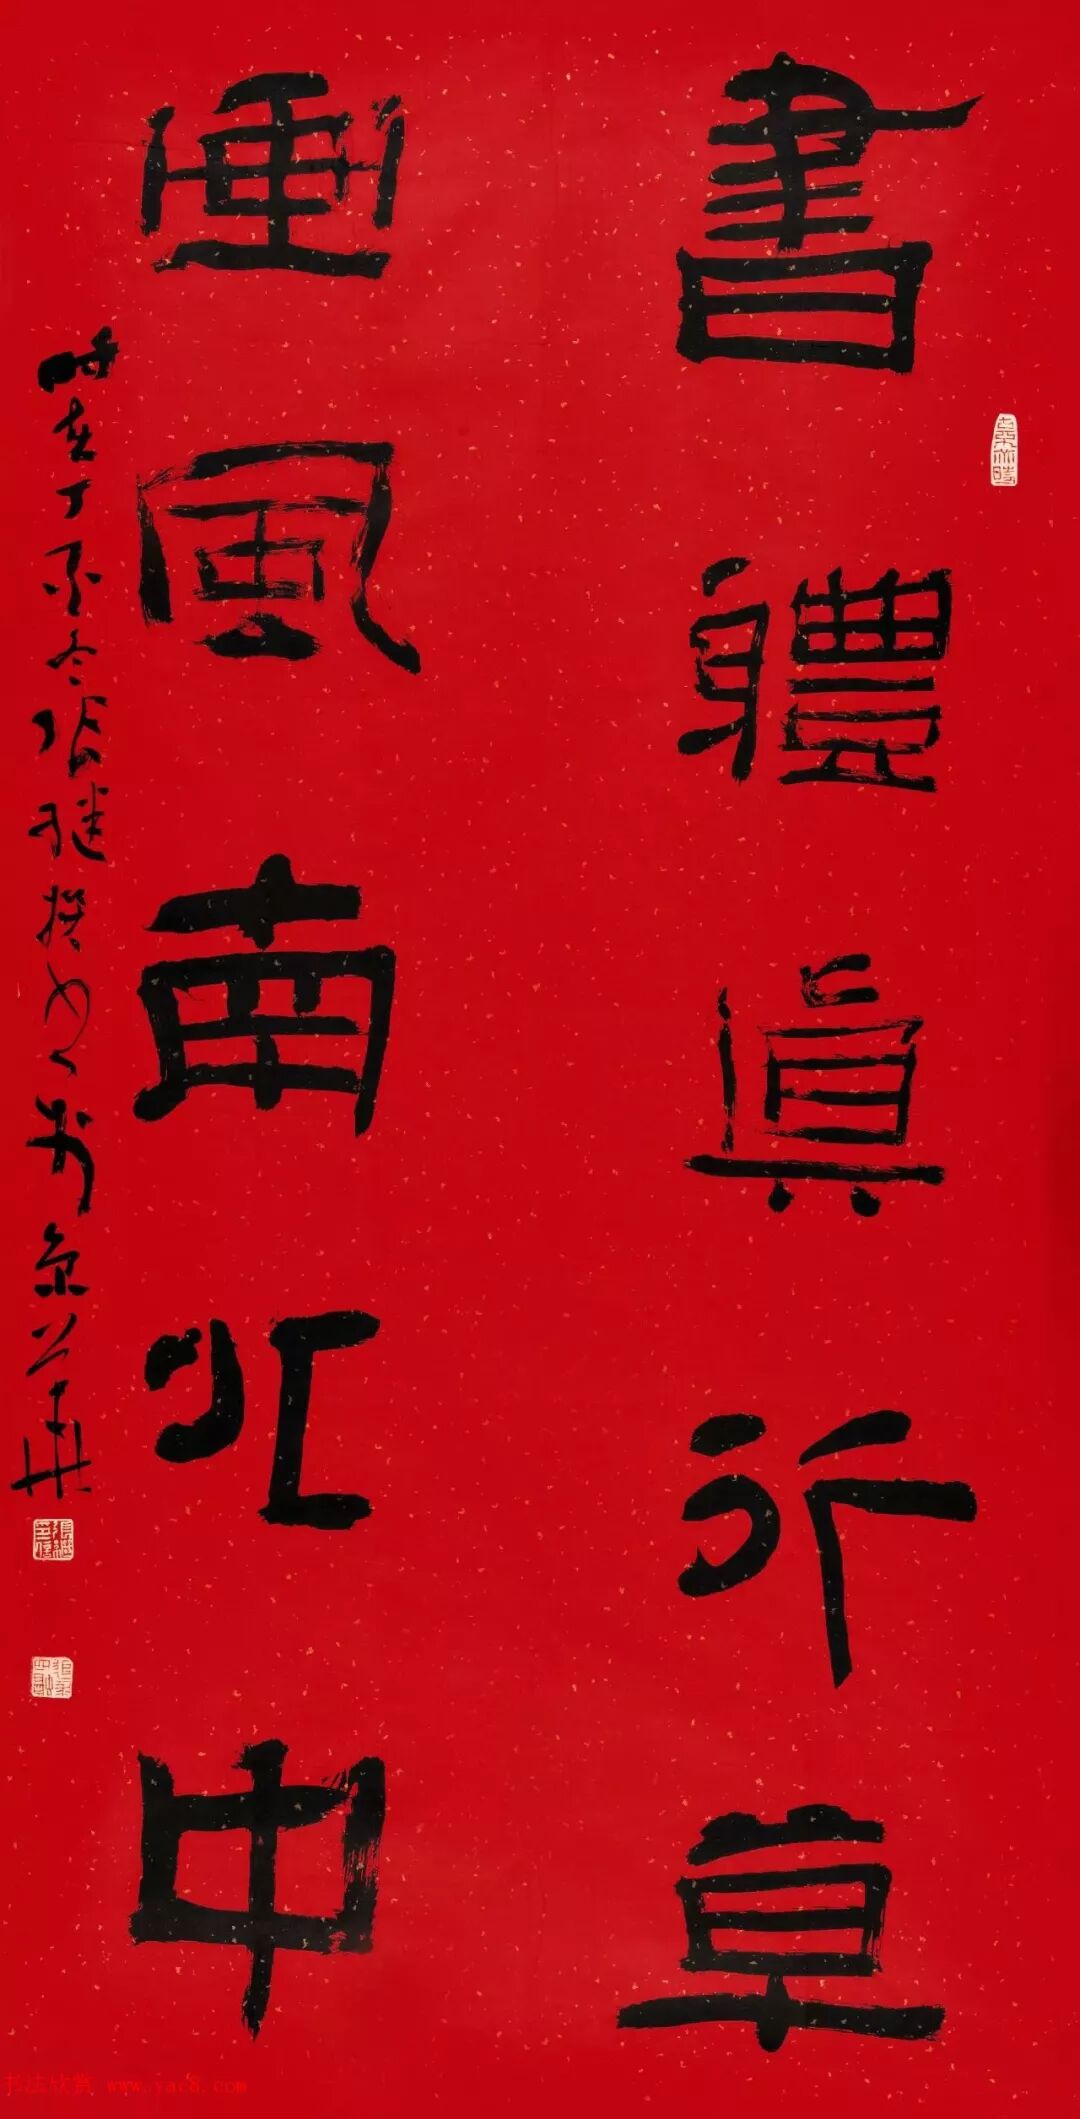 書體真行草
畫風南北中
時在丁酉冬張繼撰句并書於京華
书法欣赏 www.yac8.com